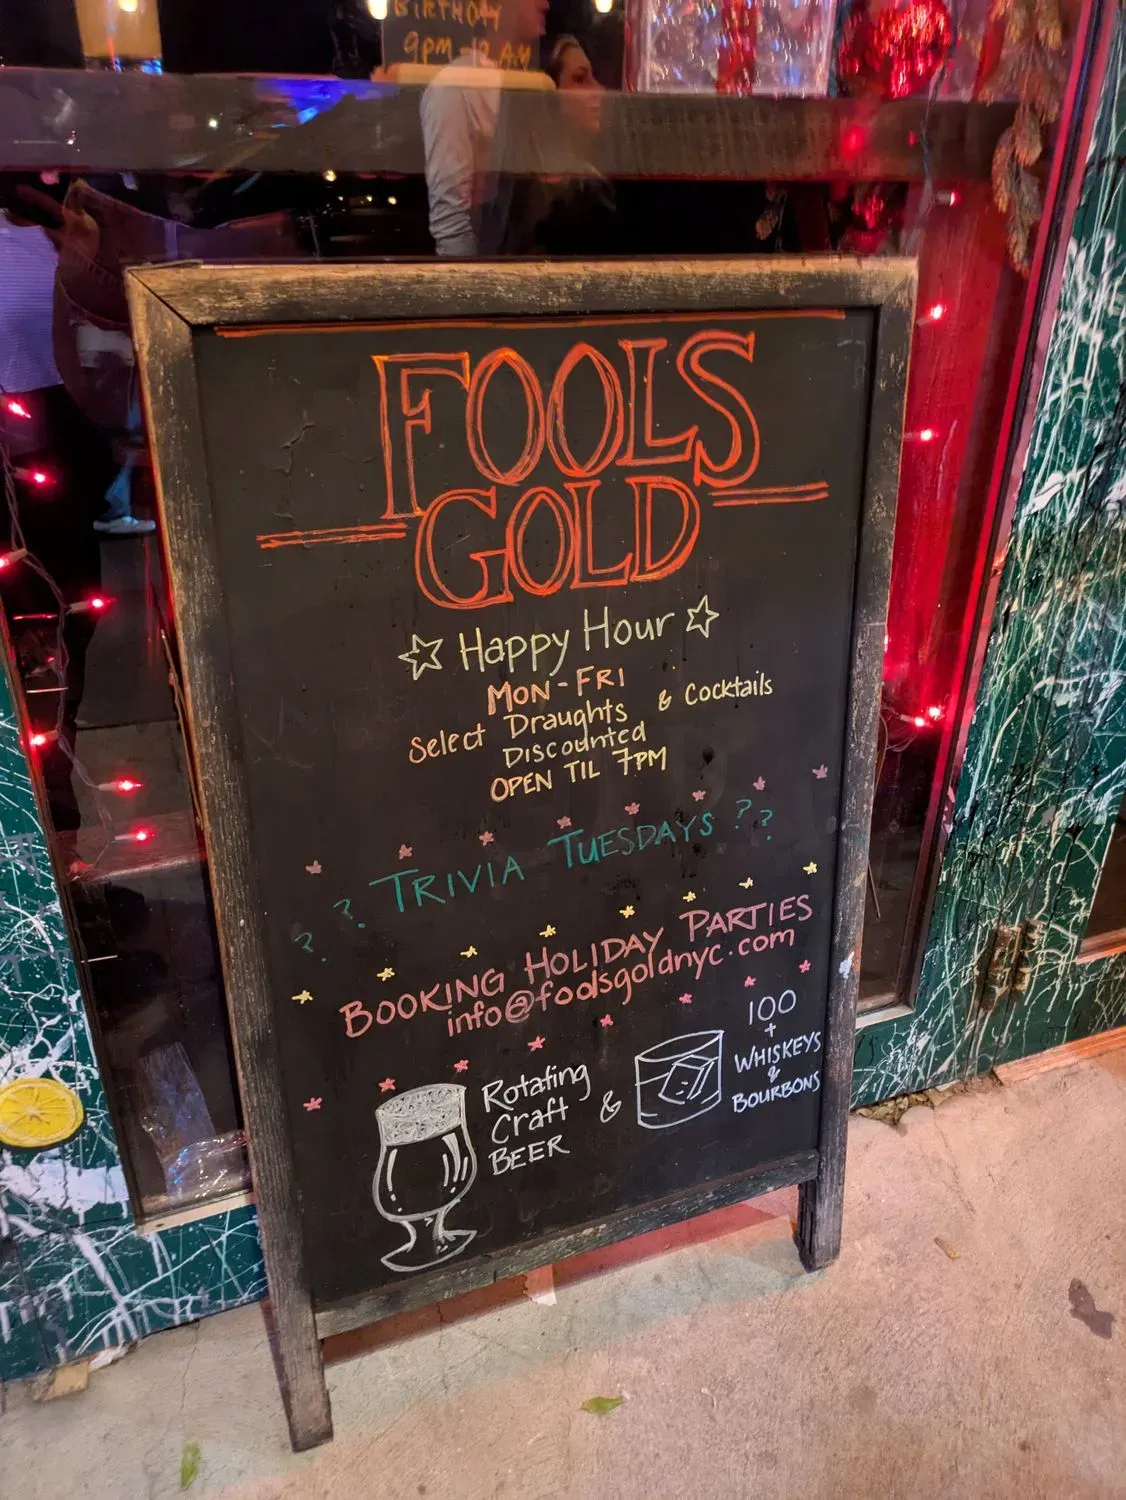 BIRTHDAY
9PM-12AM
FOOLS
GOLD
Happy Hour
MON-FRI
Select Draughts & Cocktails
Discounted
OPEN TIL 7PM
? ? TRIVIA TUESDAYS ? ?
BOOKING HOLIDAY PARTIES
info@foolsgoldnyc.com
Rotating
Craft
BEER
&
100
+
WHISKEYS
&
BOURBONS